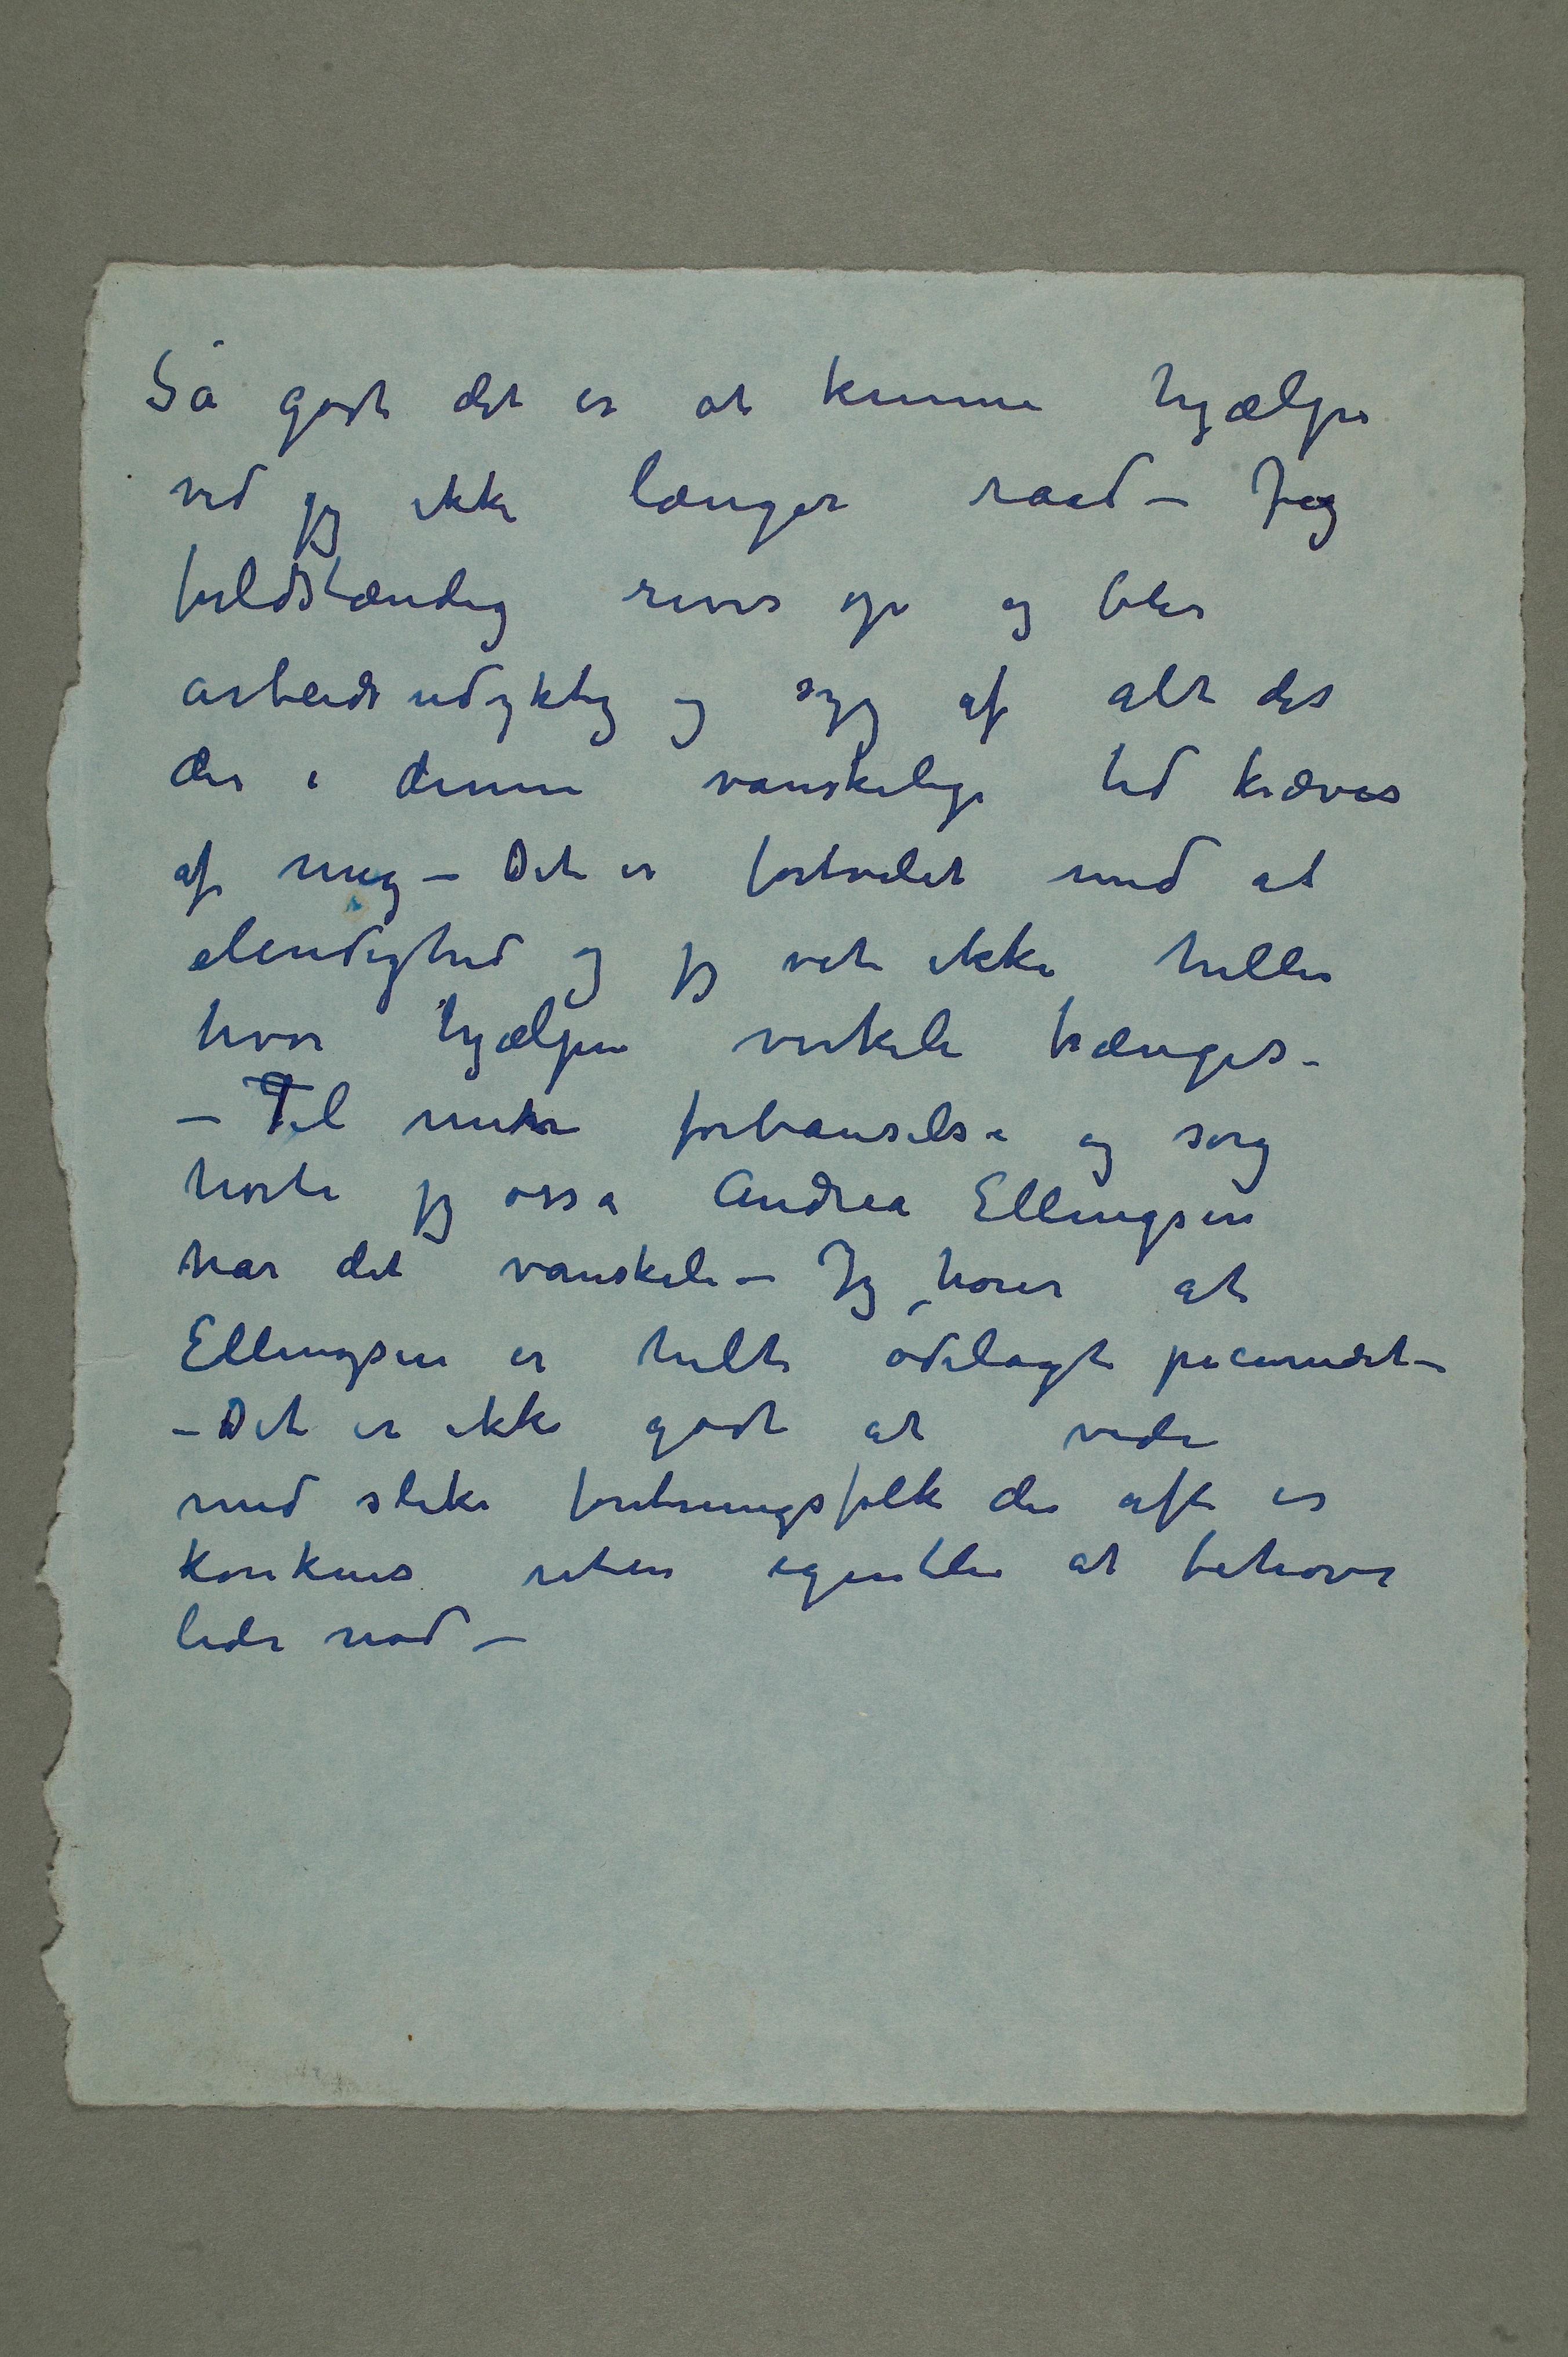 Så godt det er at kunne hjælpe
ved jeg ikke længer raad – Jeg
fuldstændig rives op og blir
arbeidsudyktig og syg af alt det
der i denne vanskelige tid kræves
af mig – Det er fortvilet med al
elendighed og jeg vet ikke heller
hvor hjælpen virkeli trænges –
– Til min forbauselse og sorg
hørte jeg osså Andrea Ellingsen
har det vanskeli – Jeg hører at
Ellingsen er helt ødelagt pecuniært –
– Det er ikke godt at vide
med slike forretningsfolk der ofte er
konkurs uten egentli at behøve
lide nød –